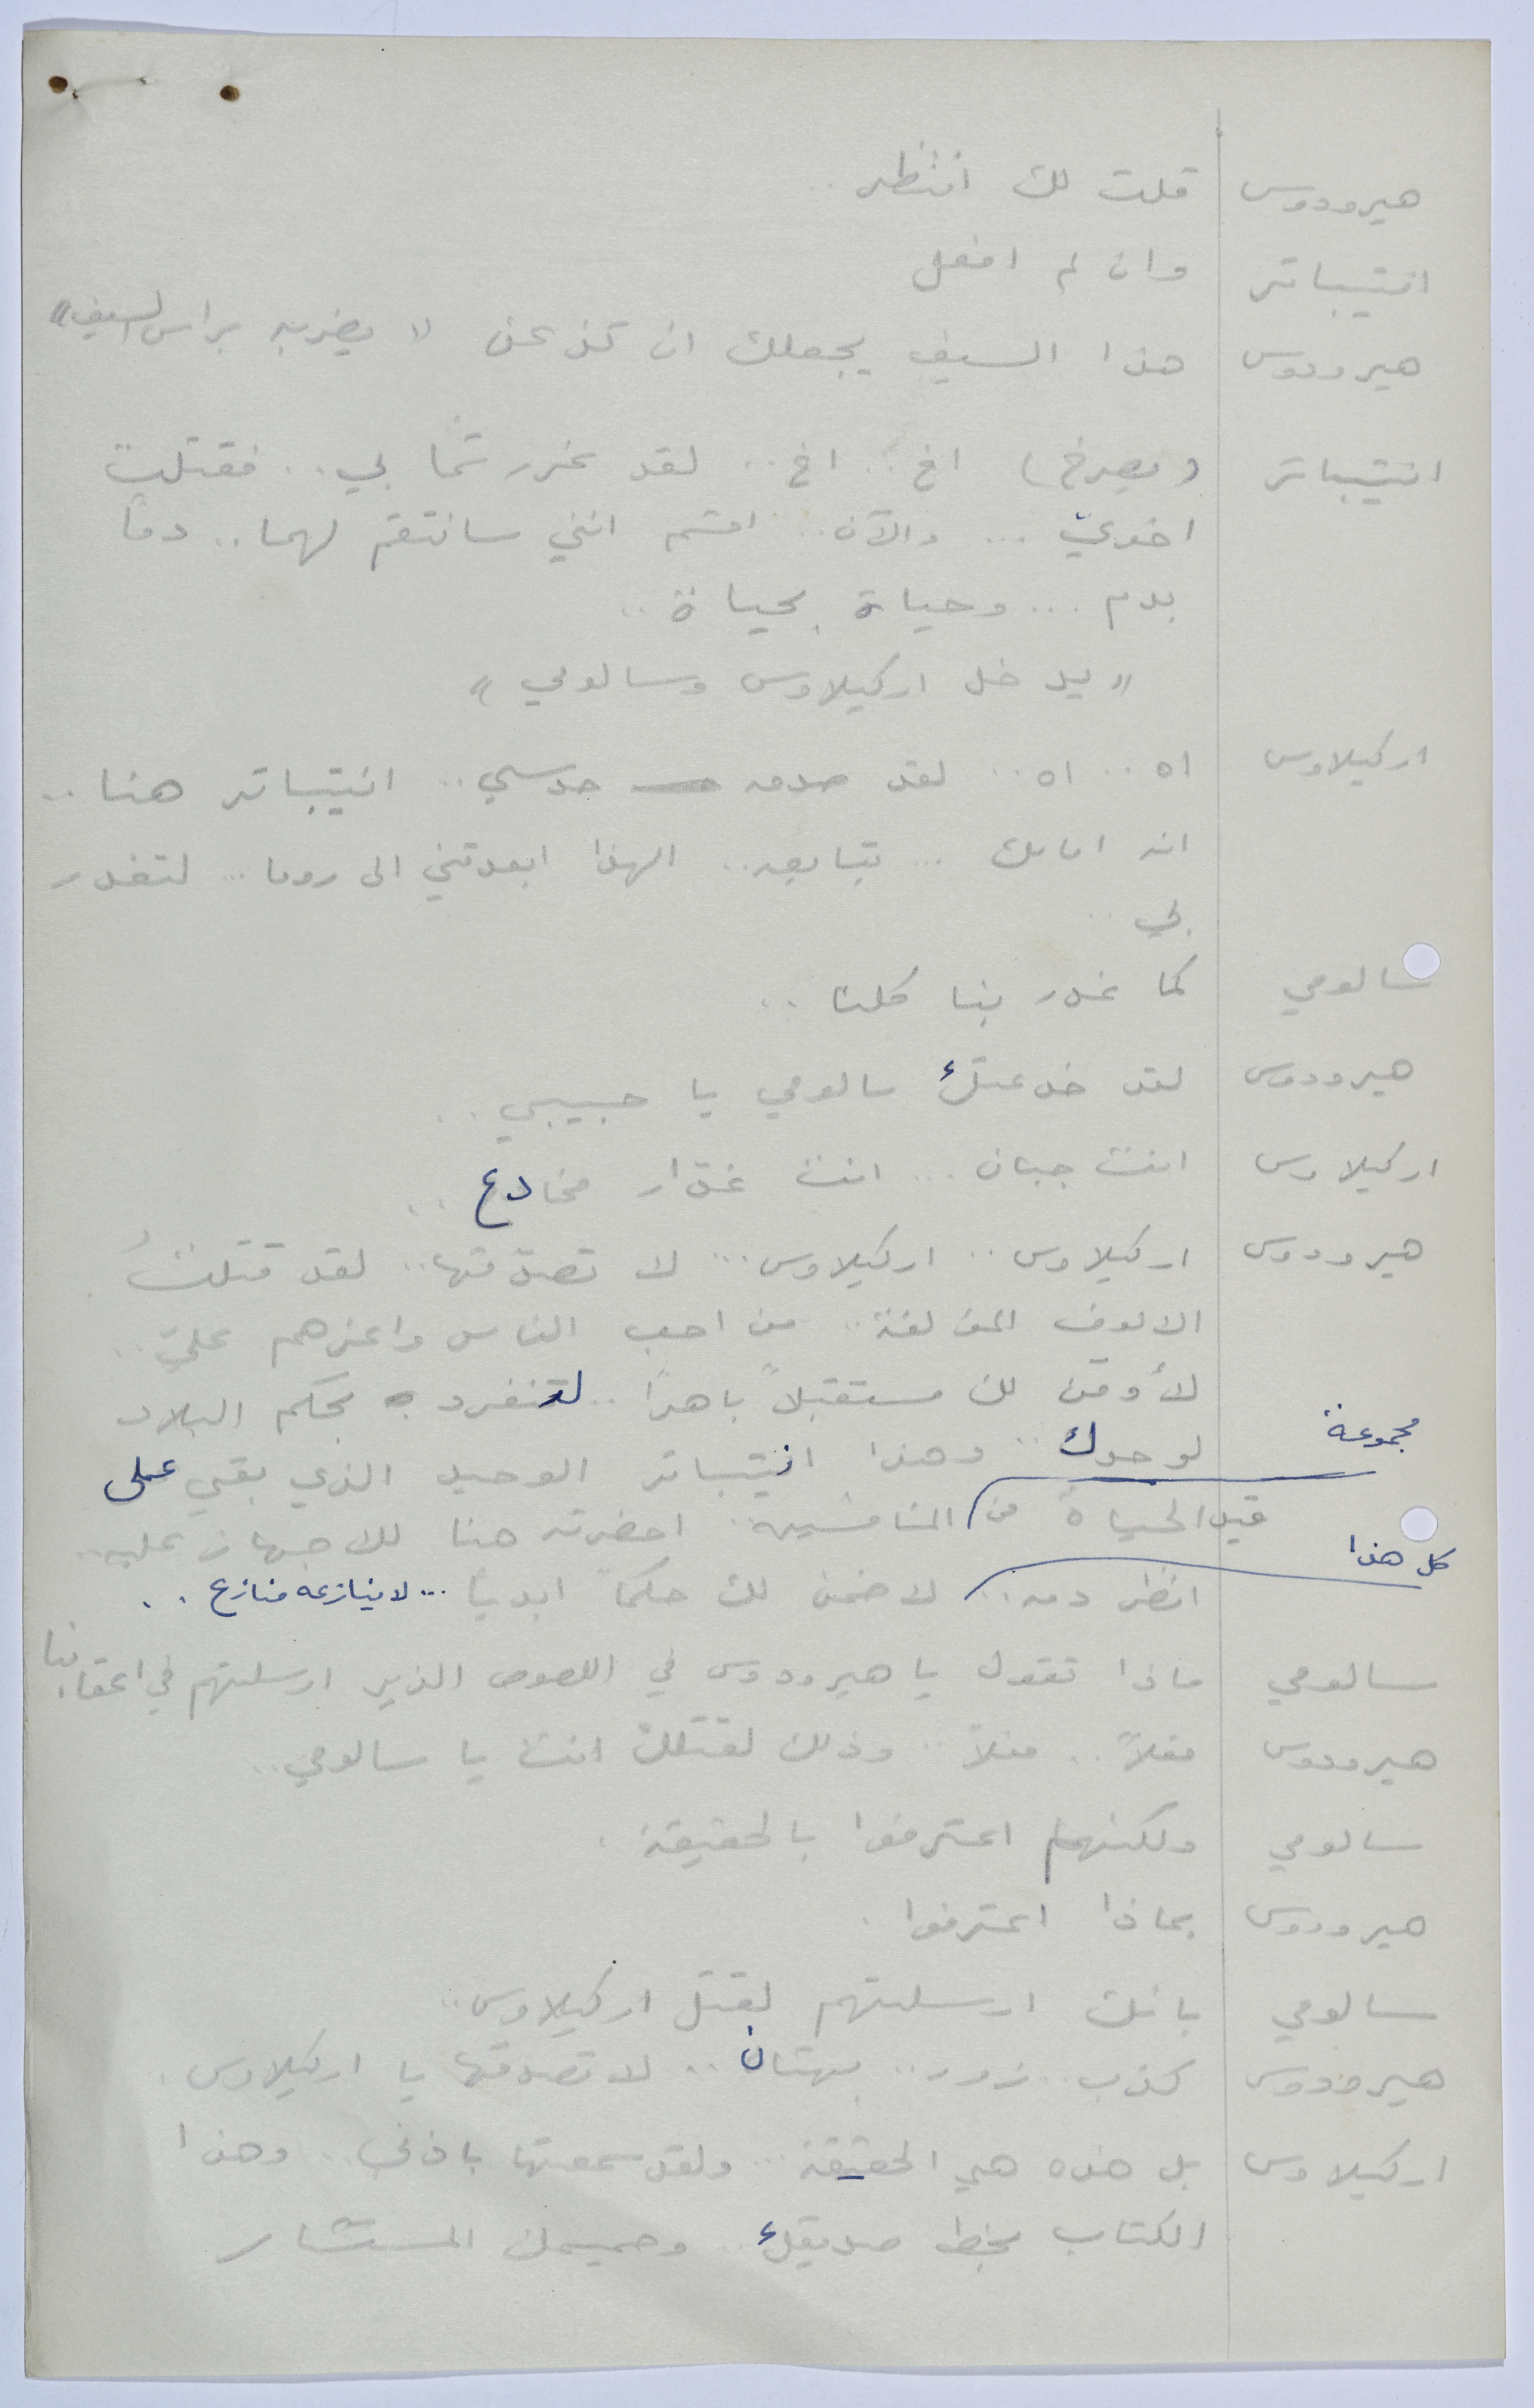 هيرودوس قلت لك انتظر ..
انتيباتر وان لم افعل
هيرودوس هذا السيف يجعلك ان تذعن « يضربه براس السيف »
انتيباتر ( يصرخ ) اخ .. اخ .. لقد غررتما بي .. فقتلت
اخويّ ... والآن .. اقسم انني سانتقم لهما .. دماً
بدم ... وحياة بحياة ..
« يدخل اركيلاوس وسالومي »
اركيلاوس اه .. اه .. لقد صدق حدسي .. انتيباتر هنا ..
انه امامك ... تبايعه .. الهذا ابعدتني الى روما ... لتغدر
بي ..
سالومي كما غدر بنا كلنا ..
هيرودوس لقد خدعتك سالومي يا حبيبي ..
اركيلاوس انت جبان ... انت غدّار مخادع ..
هيرودوس اركيلاوس .. اركيلاوس ... لا تصدّقها .. لقد قتلتُ
الالوف المؤلفة .. من احب الناس واعزهم عليّ ..
لأؤمّن لك مستقبلاً باهراً .. لتنفرد بحكم البلاد
لوحدك .. وهذا انتيباتر الوحيد الذي بقي على
قيد الحياة من مجموعة المنافسين .. احضرته هنا للاجهاز عليه ..
انظر دمه .. كل هذا لاضمن لك حكماً ابدياً ... لا ينازعه منازع ..
سالومي ماذا تقول يا هيرودوس في اللصوص الذين ارسلتهم في اعقابنا
هيرودوس فعلاً .. فعلاً .. وذلك لقتلك انت يا سالومي ..
سالومي ولكنهم اعترفوا بالحقيقة .
هيرودوس بماذا اعترفوا .
سالومي بانك ارسلتهم لقتل اركيلاوس ..
هيرودوس كذب .. زور .. بهتان .. لا تصدقها يا اركيلاوس .
اركيلاوس بل هذه هي الحقيقة ... ولقد سمعتها باذني .. وهذا
الكتاب بخط صديقك .. وحميمك المستشار